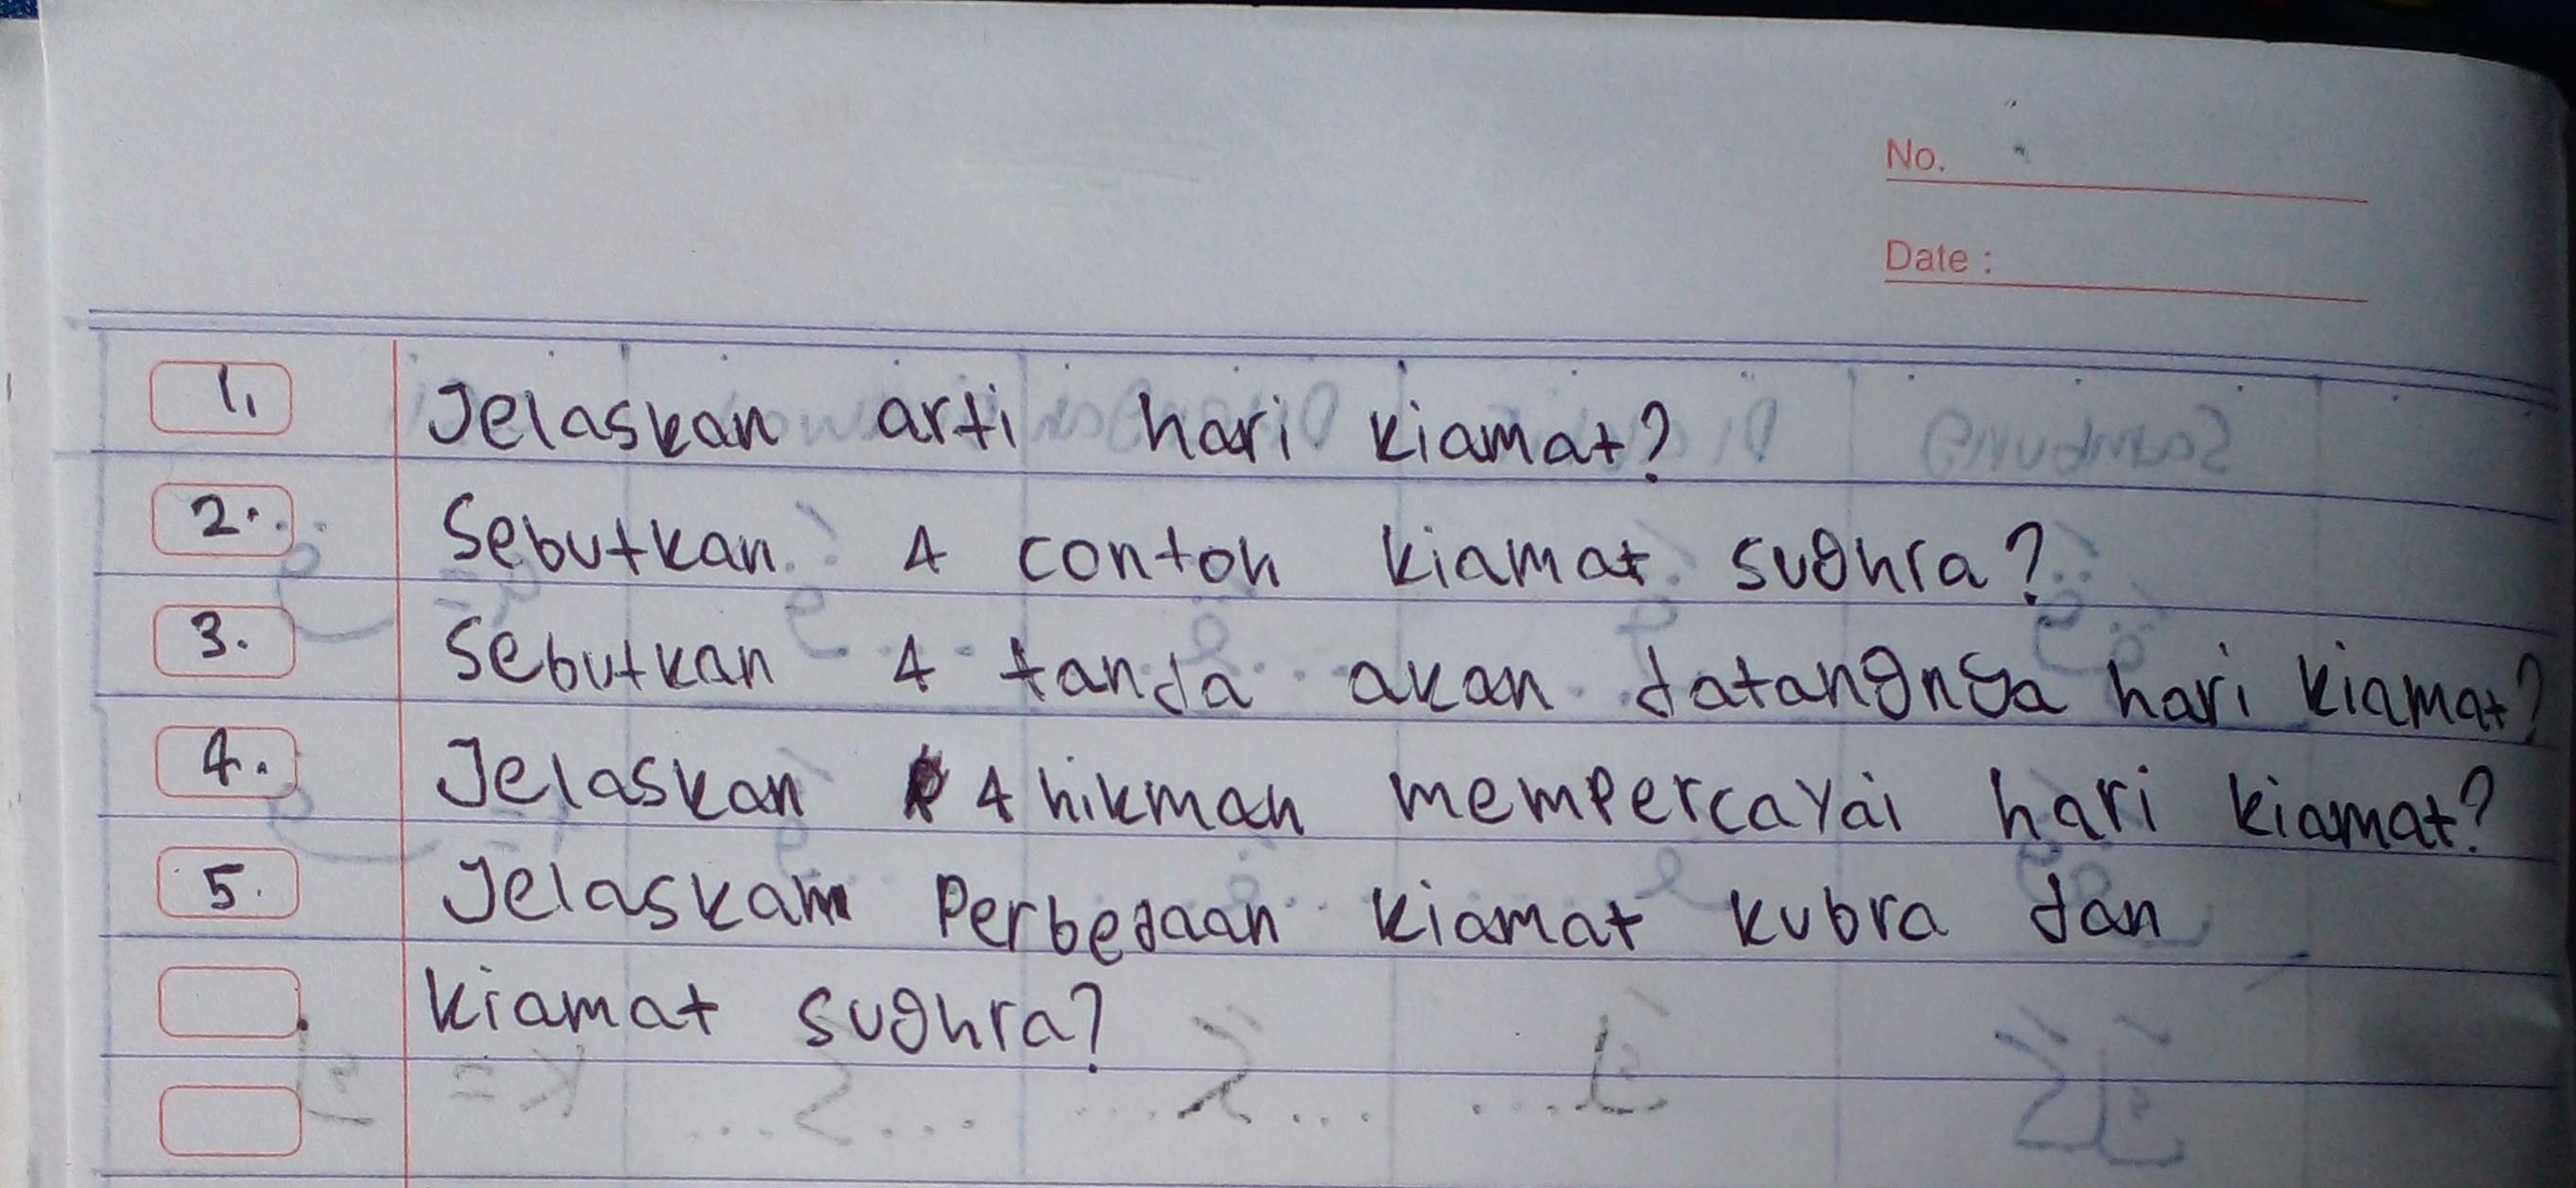 No.
Date :
1. Jelaskan arti hari kiamat?
2. Sebutkan 4 contoh kiamat sughra?
3. Sebutkan 4 tanda akan datangnya hari kiamat?
4. Jelaskan 4 hikmah mempercayai hari kiamat?
5. Jelaskan Perbedaan kiamat kubra dan
kiamat sughra?